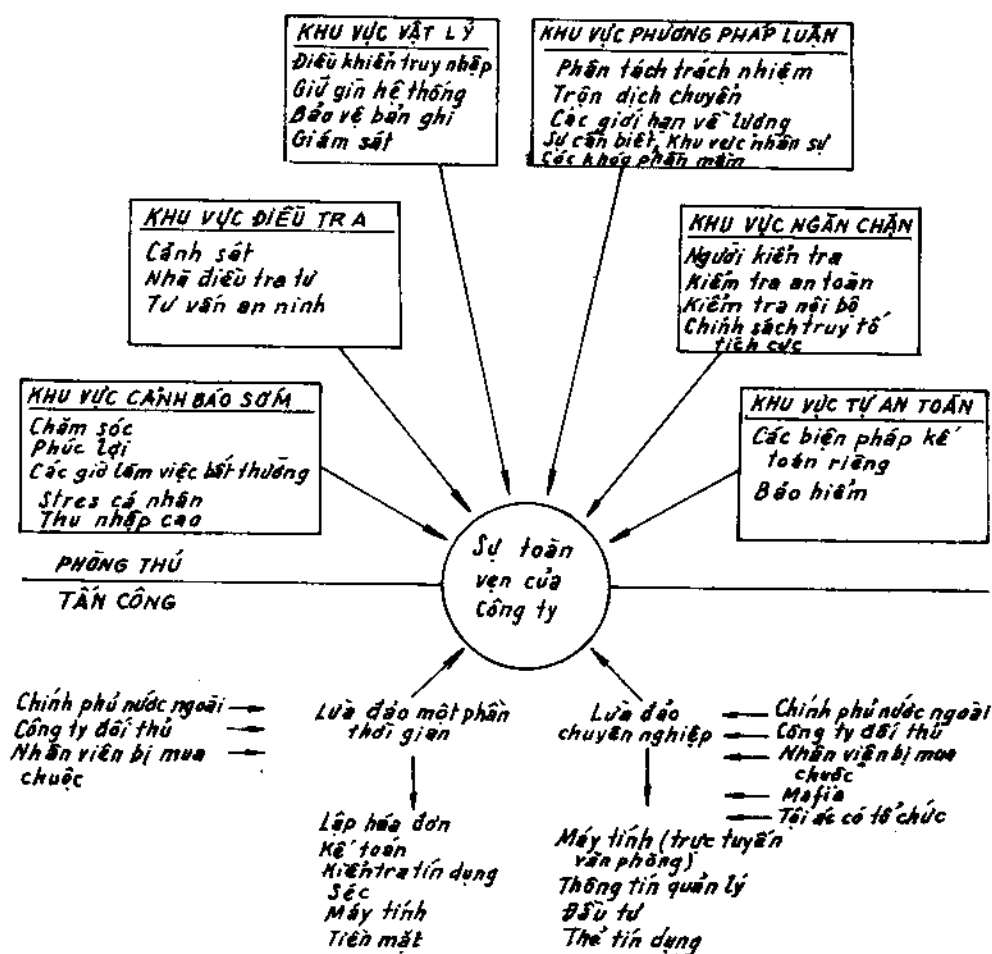 KHU VỰC VẬT LÝ
Điều khiển truy nhập
Giữ gìn hệ thống
Bảo vệ bản ghi
Giám sát
KHU VỰC PHƯƠNG PHÁP LUẬN
Phân tách trách nhiệm
Trộn dịch chuyển
Các giới hạn về lương
Sự cần biết, Khu vực nhân sự
Các khóa phần mềm
KHU VỰC ĐIỀU TRA
Cảnh sát
Nhà điều tra tư
Tư vấn an ninh
KHU VỰC NGĂN CHẶN
Người kiển tra
Kiểm tra an toàn
Kiểm tra nội bộ
Chính sách truy tố
tích cực
KHU VỰC CẢNH BÁO SỚM
Chăm sóc
Phúc lợi
Các giờ làm việc bất thường
Stres cá nhân
Thu nhập cao
KHU VỰC TỰ AN TOÀN
Các biện pháp kế
toán riêng
Bảo hiểm
Sự toàn
vẹn của
Công ty
PHÒNG THỦ
TẤN CÔNG
Chính phủ nước ngoài
Công ty đối thủ
Nhân viên bị mua
chuộc
Lừa đảo một phần
thời gian
Lừa đảo
chuyên nghiệp
Chính phủ nước ngoài
Công ty đối thủ
Nhân viên bị mua
chuốc
Mafia
Tội ác có tổ chức
Lập hóa đơn
Kế toán
Kiển tra tín dụng
Séc
Máy tính
Tiền mặt
Máy tính (trực tuyến
văn phòng)
Thông tin quản lý
Đầu tư
Thẻ tín dụng